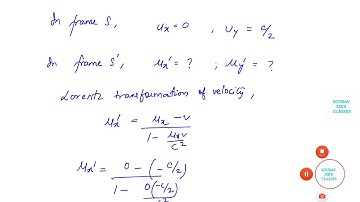 In frame S, ux = 0 , uy = c/2
In frame S', ux' = ? ; uy' = ?
Lorentz transformation of velocity,
ux' = (ux - v) / (1 - uxv/c²)
ux' = (0 - (-c/2)) / (1 - 0(-c/2)/c²)
SOURAV
SIR'S
CLASSES
SOURAV
SIR'S
CLASSES